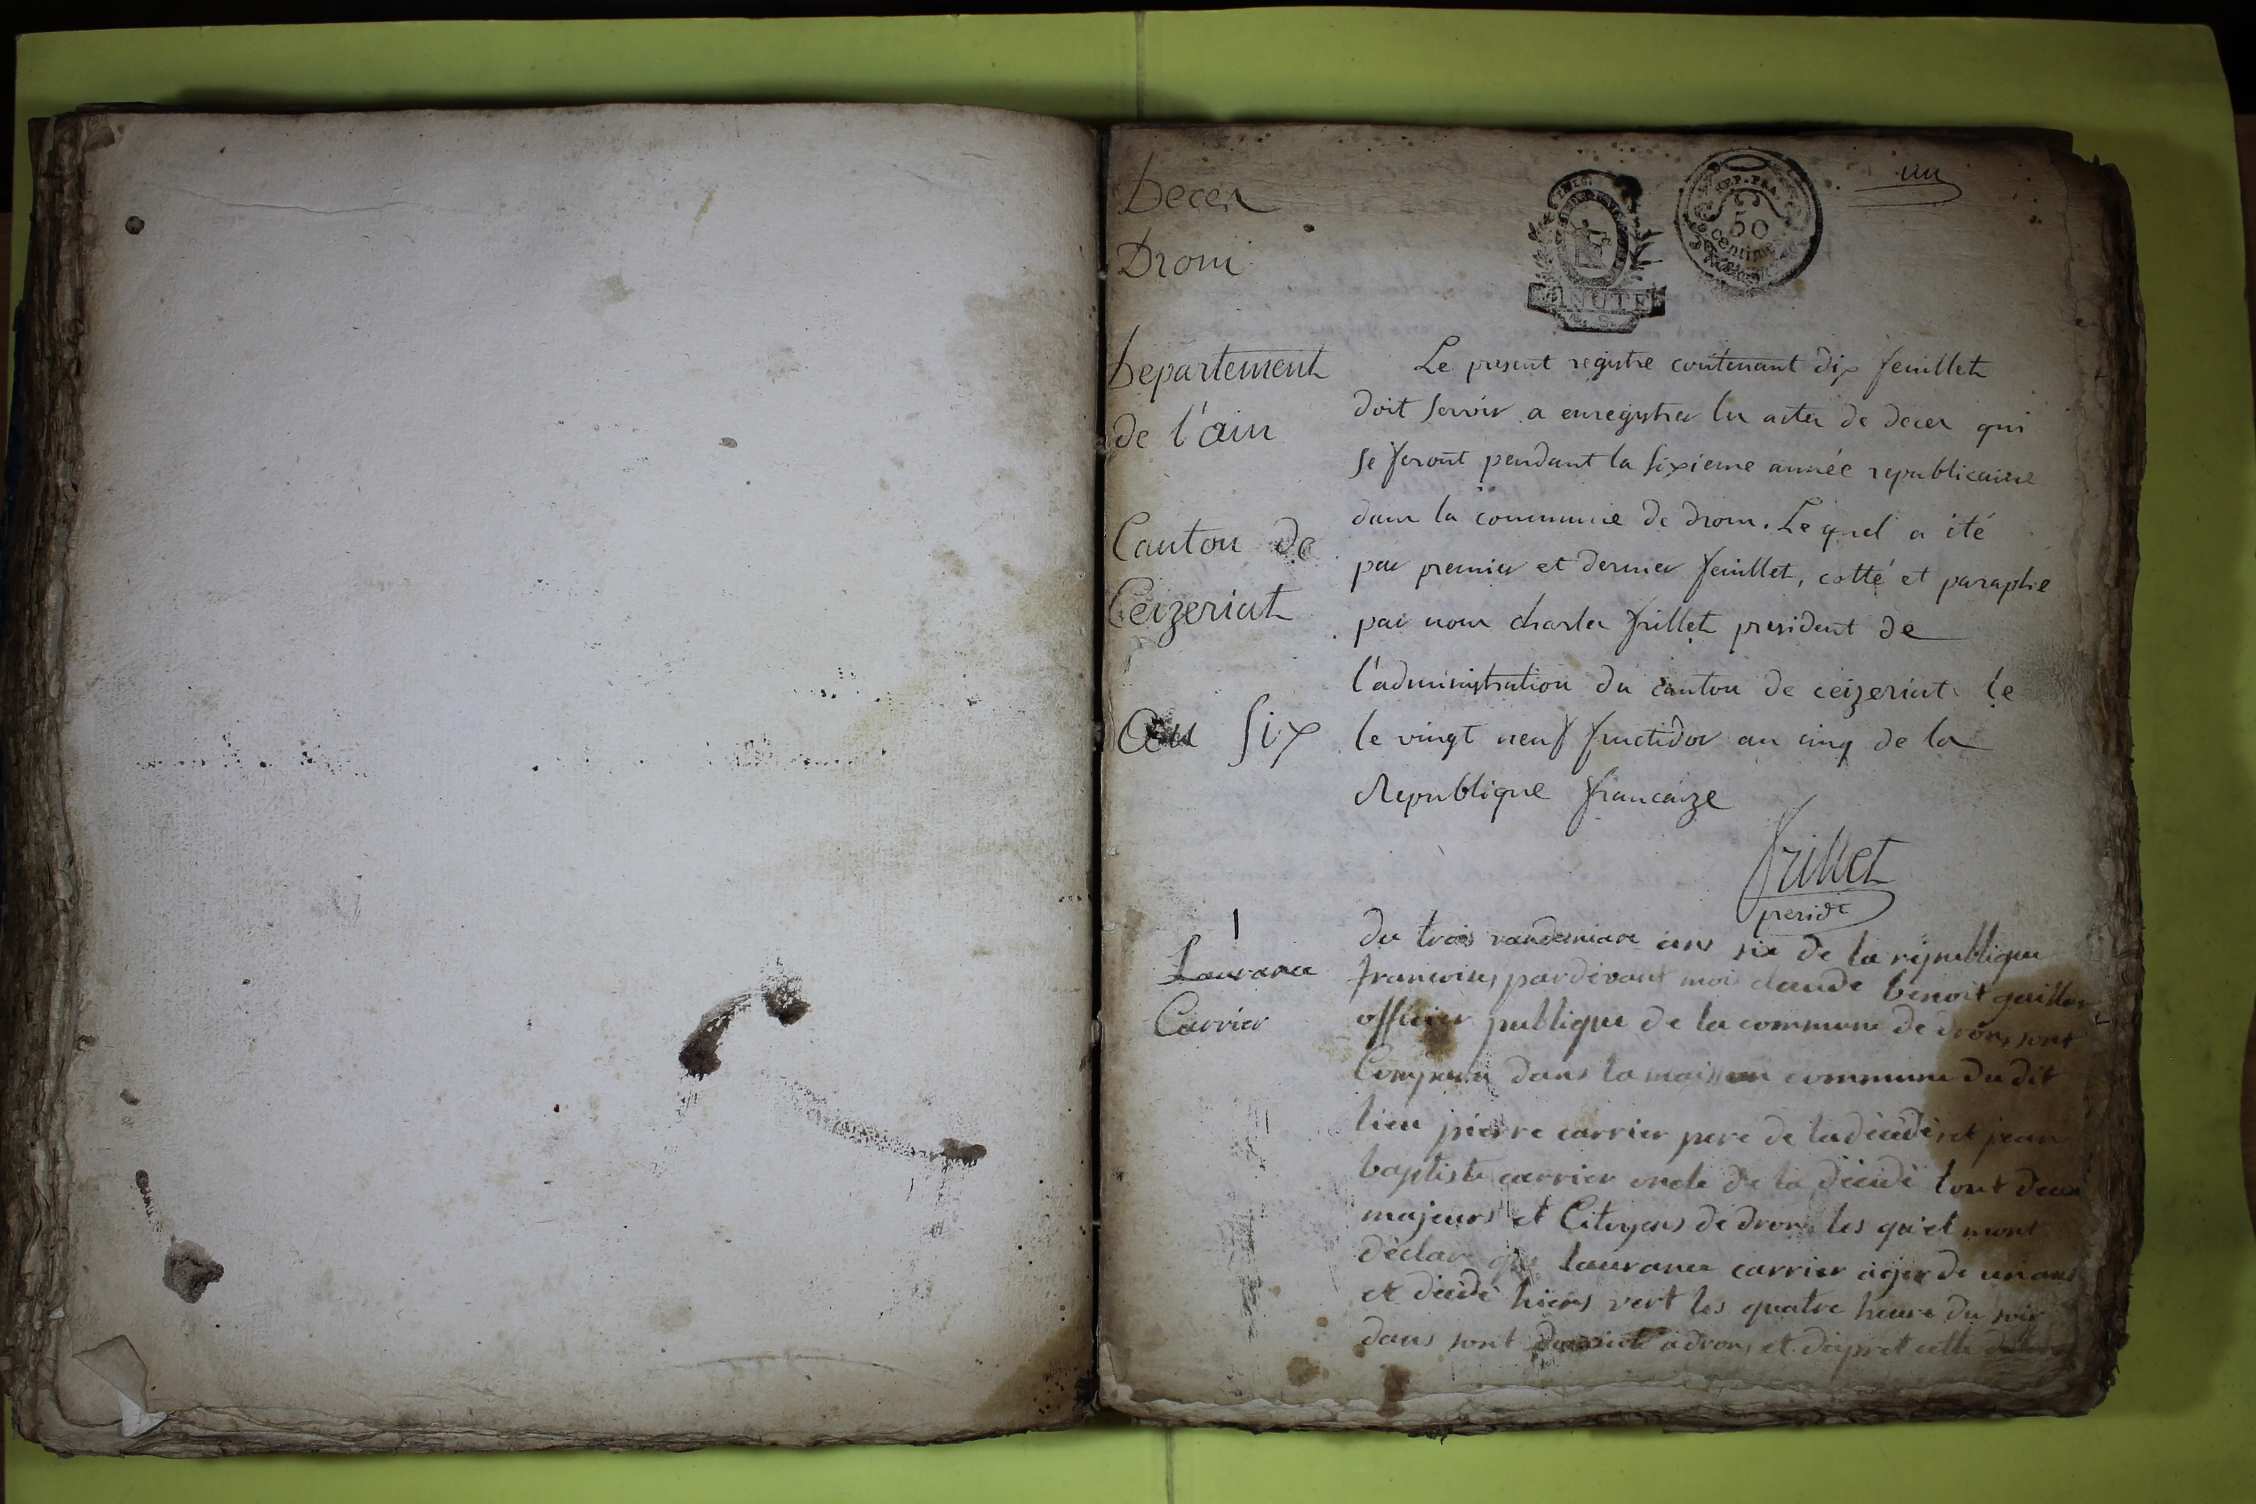 un
REP. FRA.
50
centime
MINUTE
Decer
Drom
Departement
de l'ain
Canton de
Ceizeriat
an six
Le present registre contenant dix feuillets
doit servir a enregistrer les actes de deces qui
se feront pendant la sixieme année republicaine
dans la commune de drom. Le quel a été
par premier et dernier feuillet, cotté et paraphé
par nous charles frillet president de
l'administration du canton de ceizeriat le
le vingt neuf fructidor an cinq de la
Republique francaize
frillet
presidt
1
Laurance
Carrier
du trois vandemiare ans six de la republique
francoise, pardevant moi claude benoit gaillar
officier publique de la commune de drom, sont
Comparu dans la maison commune du dit
lieu pierre carrier pere de la décédé et jean
baptiste carrier oncle de la décédé tout deux
majeurs et Citoyens de drom les quel mont
déclaré que laurance carrier agée de un ans
et décédé hiers vert les quatre heure du soir
dans sont domicile a drom, et d'apret cette